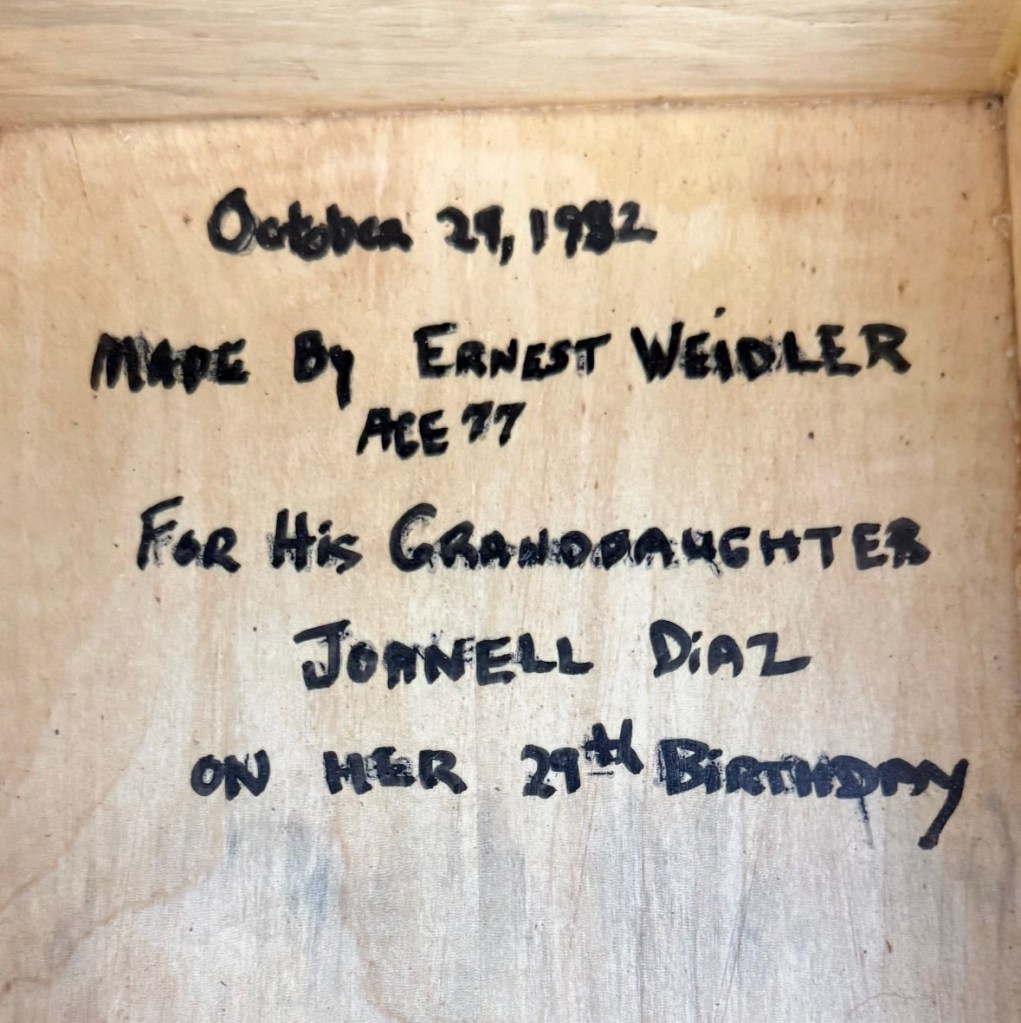 October 29, 1982
MADE By ERNEST WEiDLER
AGE 77
FOR His GRANDDAUGHTER
JOANELL DiAZ
ON HER 29th BiRTHDAY